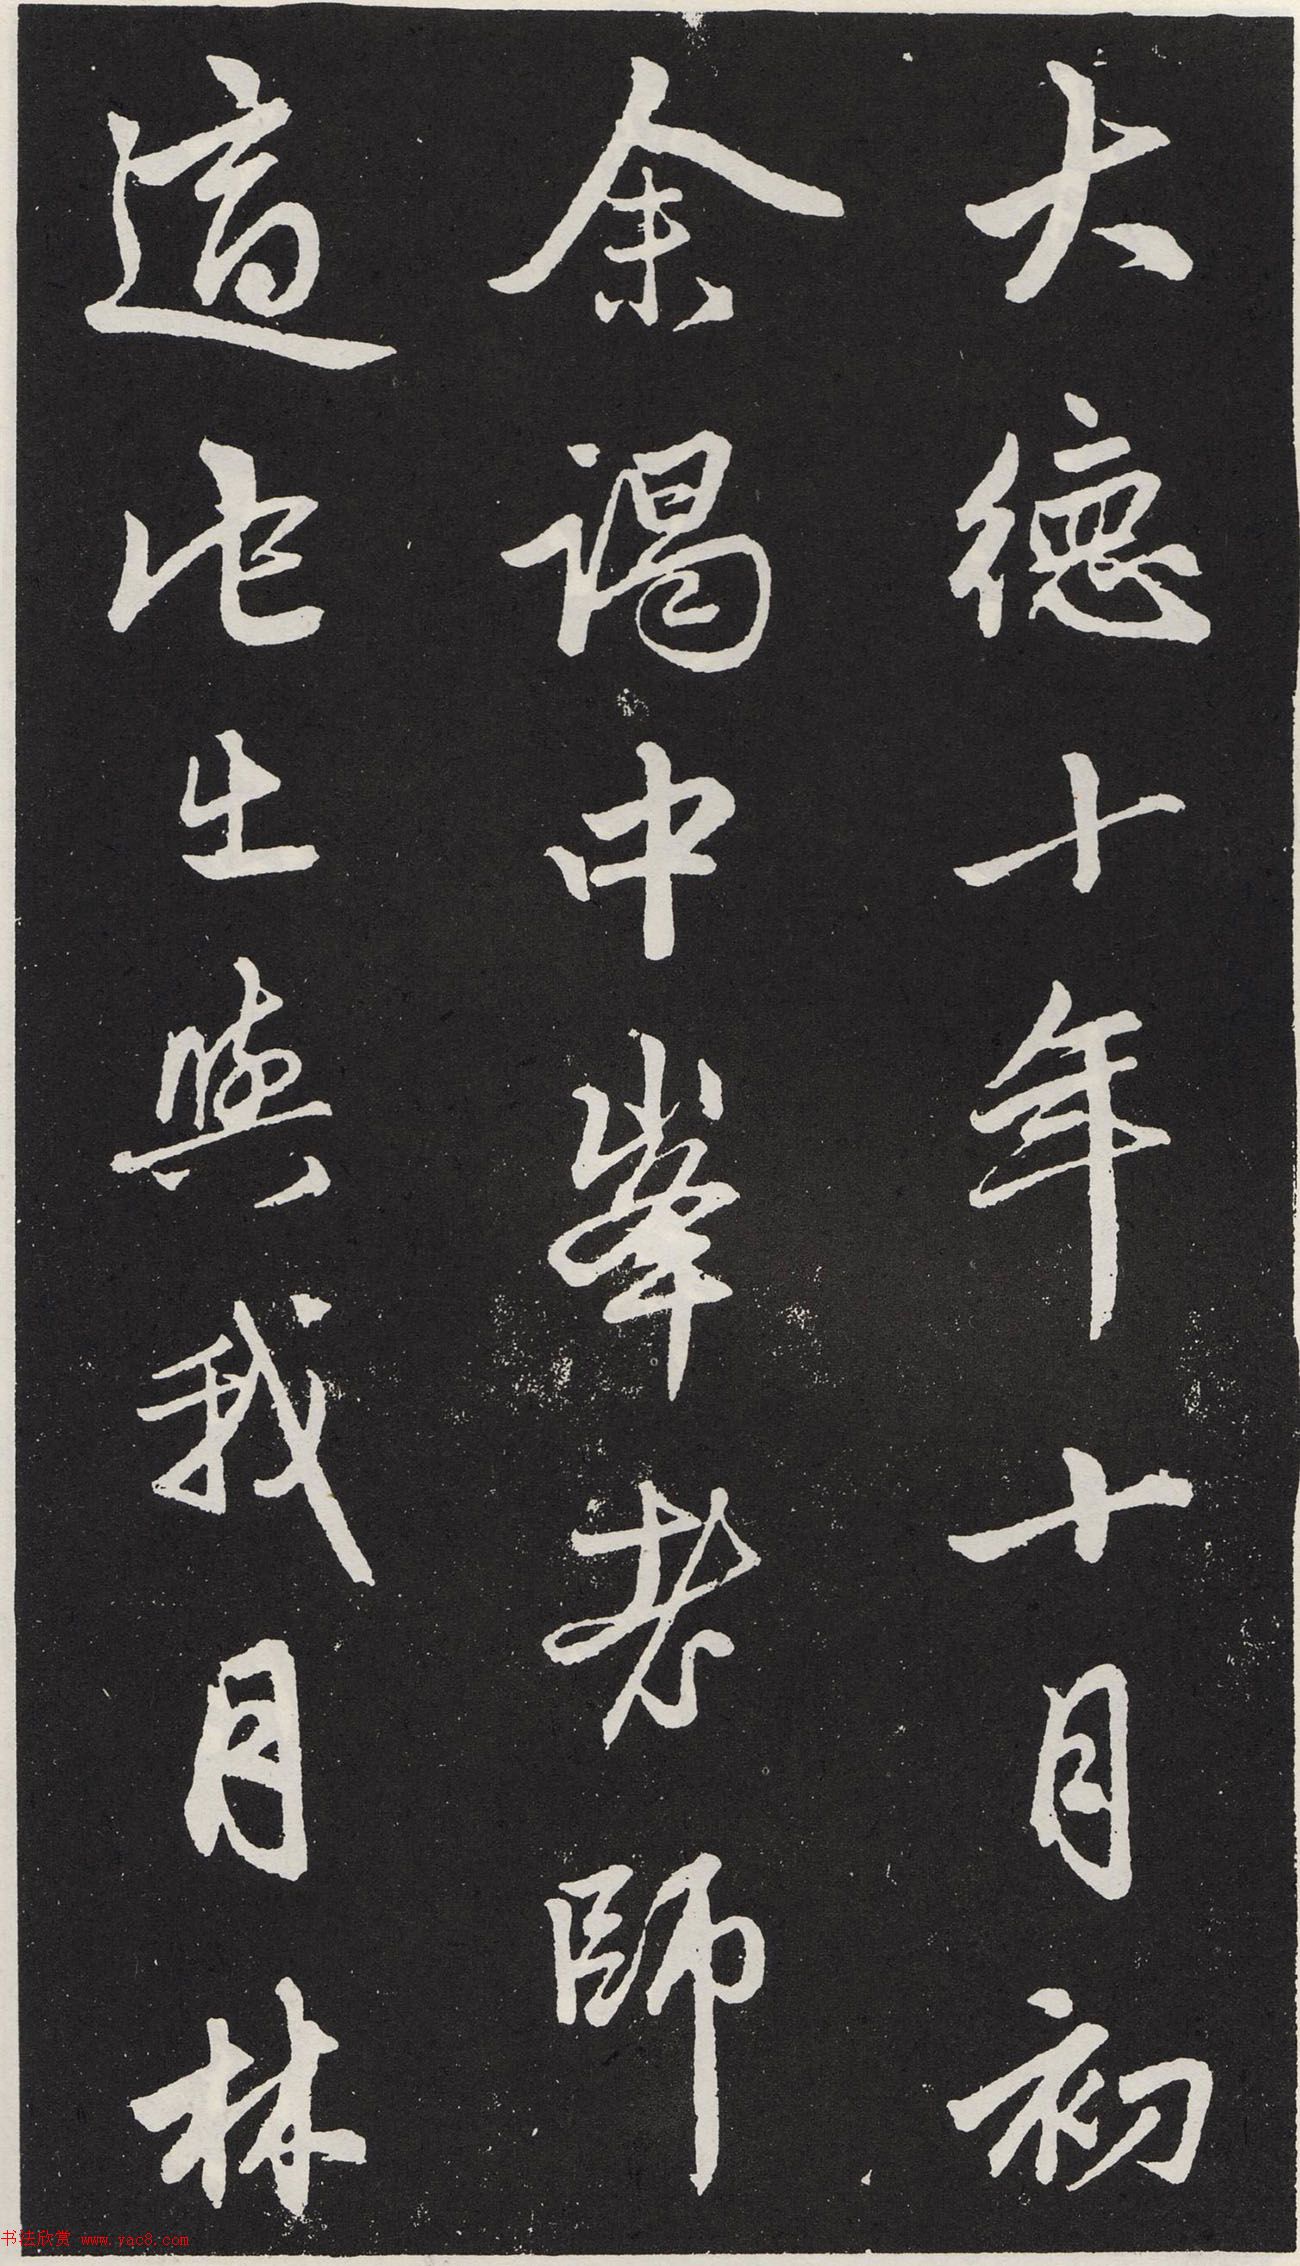 大德十年十月初
余謁中峯老師
適他出與我月林
书法欣赏 www.yac8.com